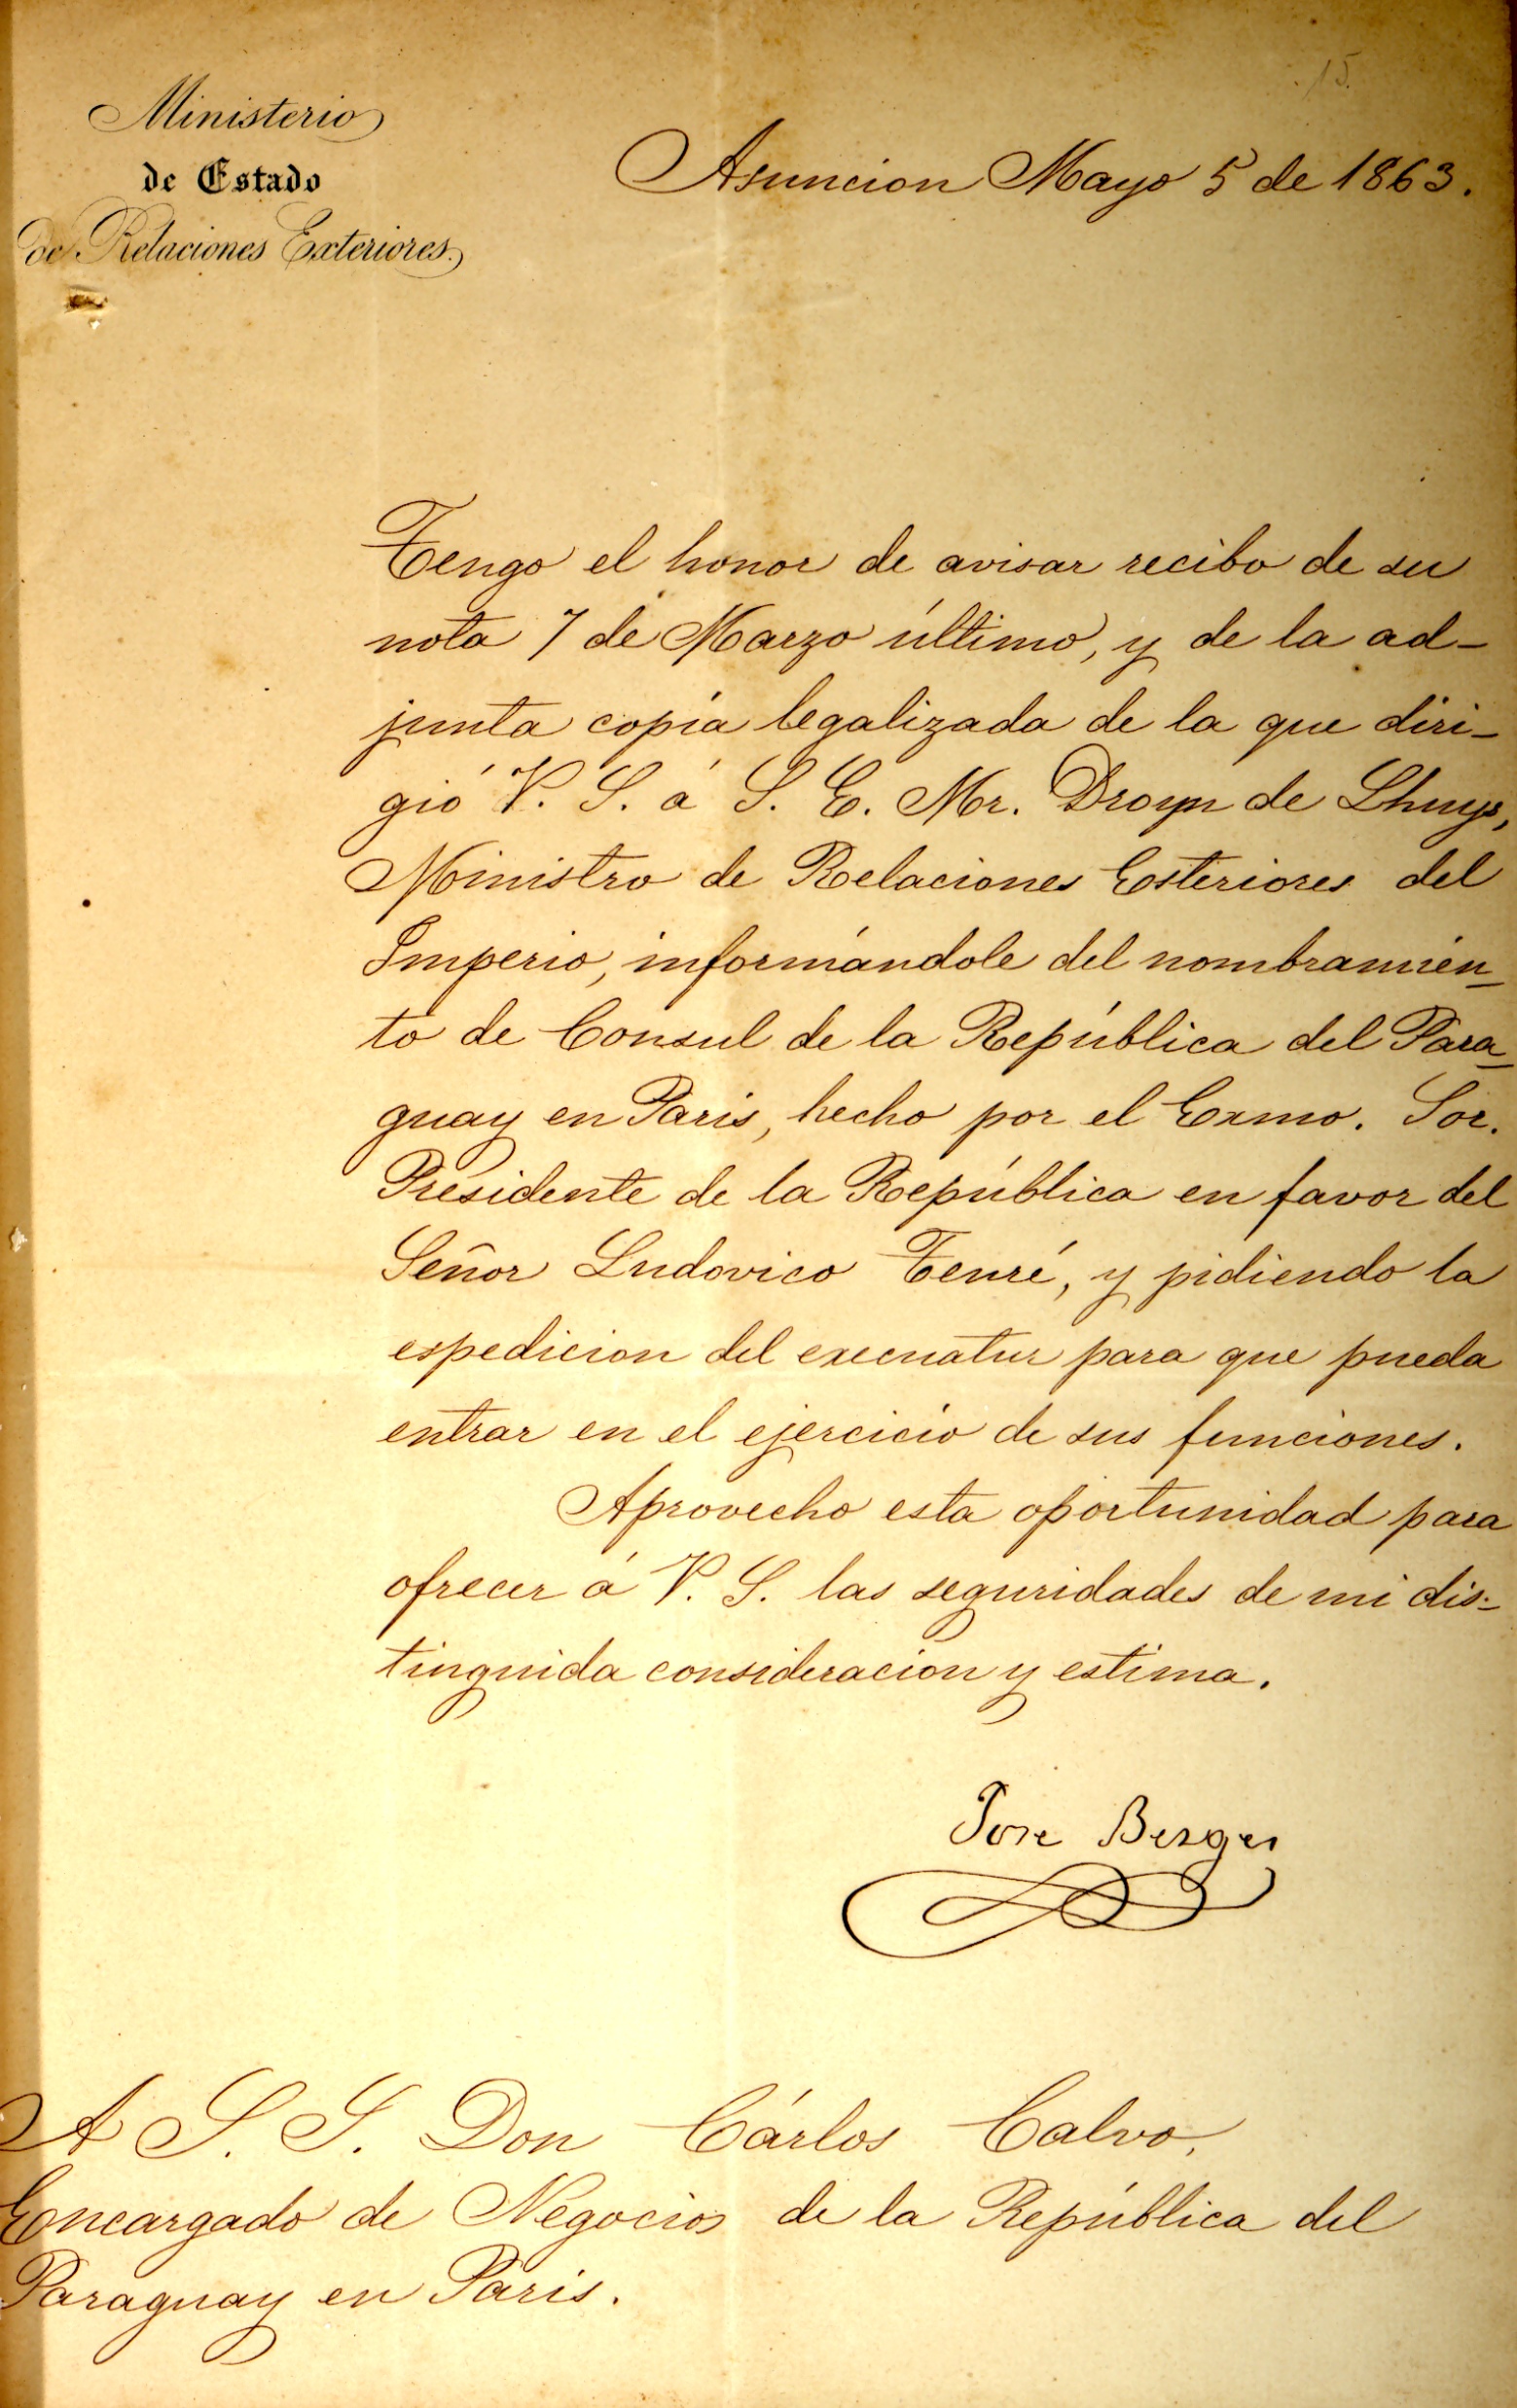 15.
Ministerio
de Estado
de Relaciones Exteriores.
Asuncion Mayo 5 de 1863.
Tengo el honor de avisar recibo de su
nota 7 de Marzo último, y de la ad-
junta copia legalizada de la que diri-
gió V. S. á S. E. Mr. Droyn de Lhuys,
Ministro de Relaciones Esteriores del
Imperio, informándole del nombramien-
to de Consul de la República del Para-
guay en Paris, hecho por el Exmo. Sor.
Presidente de la República en favor del
Señor Ludovico Tenré, y pidiendo la
espedicion del execuatur para que pueda
entrar en el ejercicio de sus funciones.
Aprovecho esta oportunidad para
ofrecer á V. S. las seguridades de mi dis-
tinguida consideracion y estima.
Jose Berges
A S. S. Don Cárlos Calvo,
Encargado de Negocios de la República del
Paraguay en Paris.